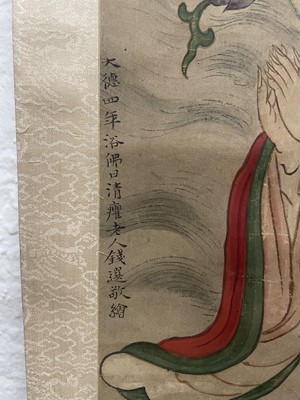 大德四年浴佛日清癯老人錢選敬繪